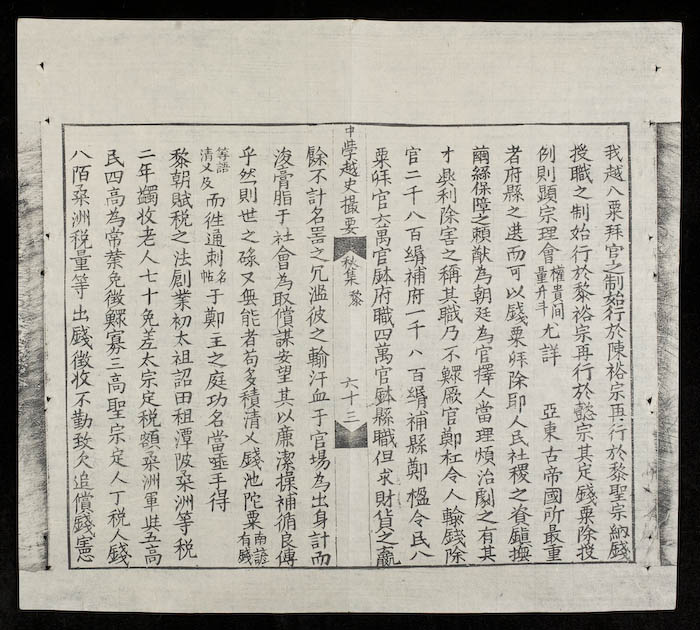 我越八粟拜官之制始行於陳裕宗再行於黎聖宗納錢
授職之制始行於黎裕宗再行於懿宗其定錢粟除授
例則顯宗理會權貴間量升斗尤詳 亞東古帝國所最重
者府縣之選而可以錢粟拜除印人民社稷之資鎮撫
繭絲保障之賴猷為朝廷為官擇人當理煩治劇之有其
才興利除害之稱其職乃不鰥厥官鄭杠令人輸錢除
官二千八百緡補府一千八百緡補縣鄭楹令民入
粟拜官六萬官缽府職四萬官缽縣職但求財貨之贏
中學越史撮要 秋集 黎 六十三
餘不計名器之冗濫彼之輸汗血于官場為出身計而
浚膏脂于社會為取償謀妄望其以廉潔操補循良傳
乎然則世之碌又無能者苟多積清乂錢池陀粟南諺有錢
等語清乂及而徃通刺名帖于鄭王之庭功名當垂手得
黎朝賦税之法創業初太祖詔田租潭陂桑洲等税
二年蠲收老人七十免差太宗定税額桑洲軍與五高
民四高為常葉免徵鰥寡三高聖宗定人丁税人錢
八陌桑洲税量等出錢徵收不勤致欠追償錢憲